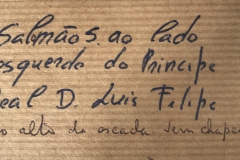 Salmão S. ao lado
esquerdo do Principe
Real D. Luis Felipe
no alto da escada sem chape